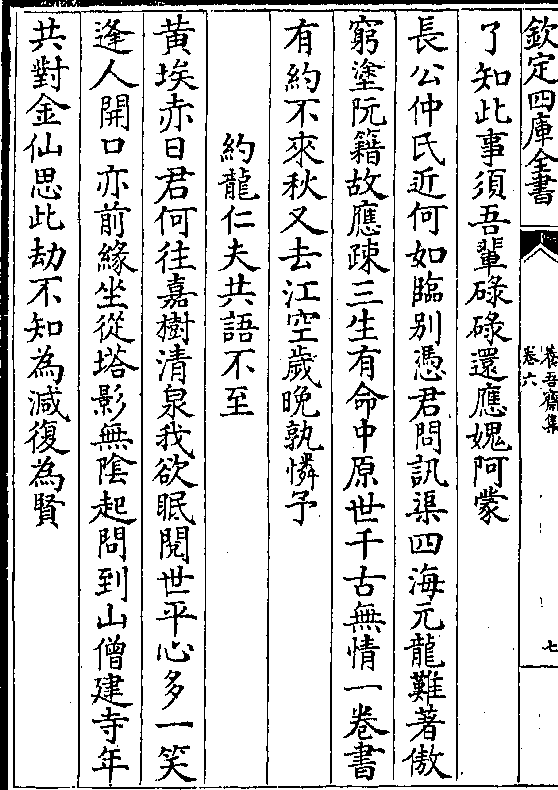 欽定四庫全書
養吾齋集
卷六
七
了知此事須吾輩碌碌還應媿阿蒙
長公仲氏近何如臨别憑君問訊渠四海元龍難著傲
窮塗阮籍故應疎三生有命中原世千古無情一卷書
有約不來秋又去江空歲晚孰憐予
約龍仁夫共語不至
黄埃赤日君何往嘉樹清泉我欲眠閱世平心多一笑
逢人開口亦前緣坐從塔影無陰起問到山僧建寺年
共對金仙思此劫不知為減復為賢